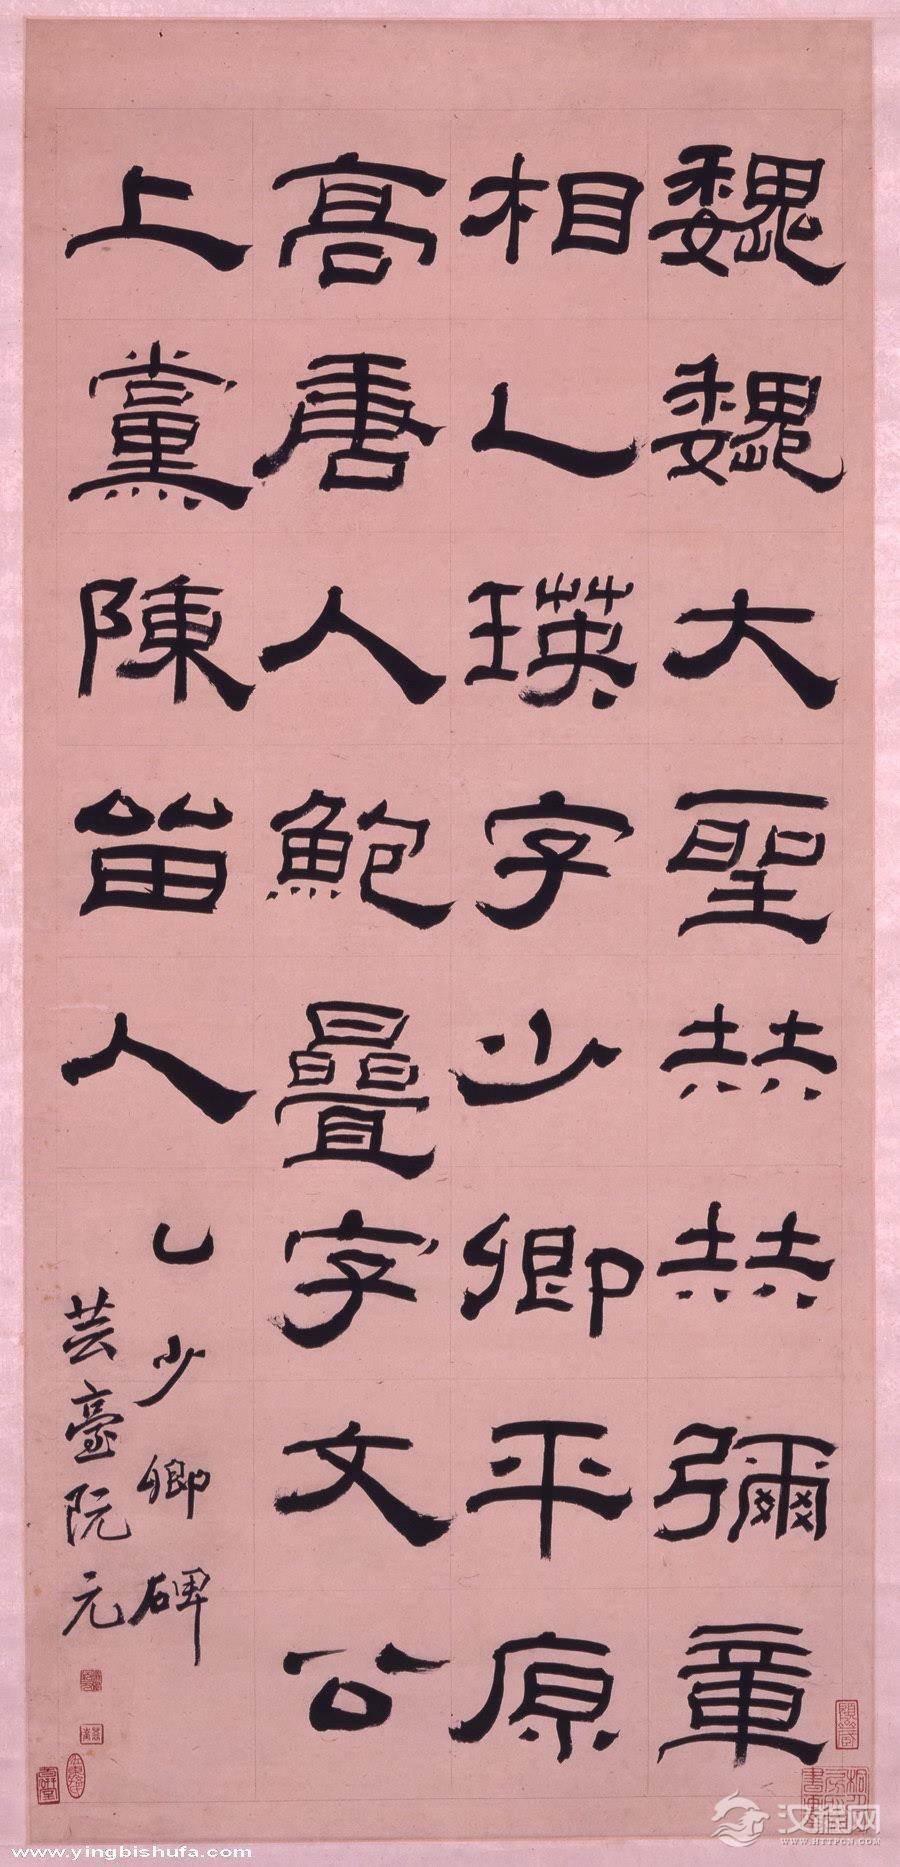 魏魏大聖赫赫彌章
相乙瑛字少卿平原
高唐人鮑疊字文公
上黨陳留人
乙少卿碑
芸臺阮元
www.yingbishufa.com
汉程网
WWW.HTTPCN.COM